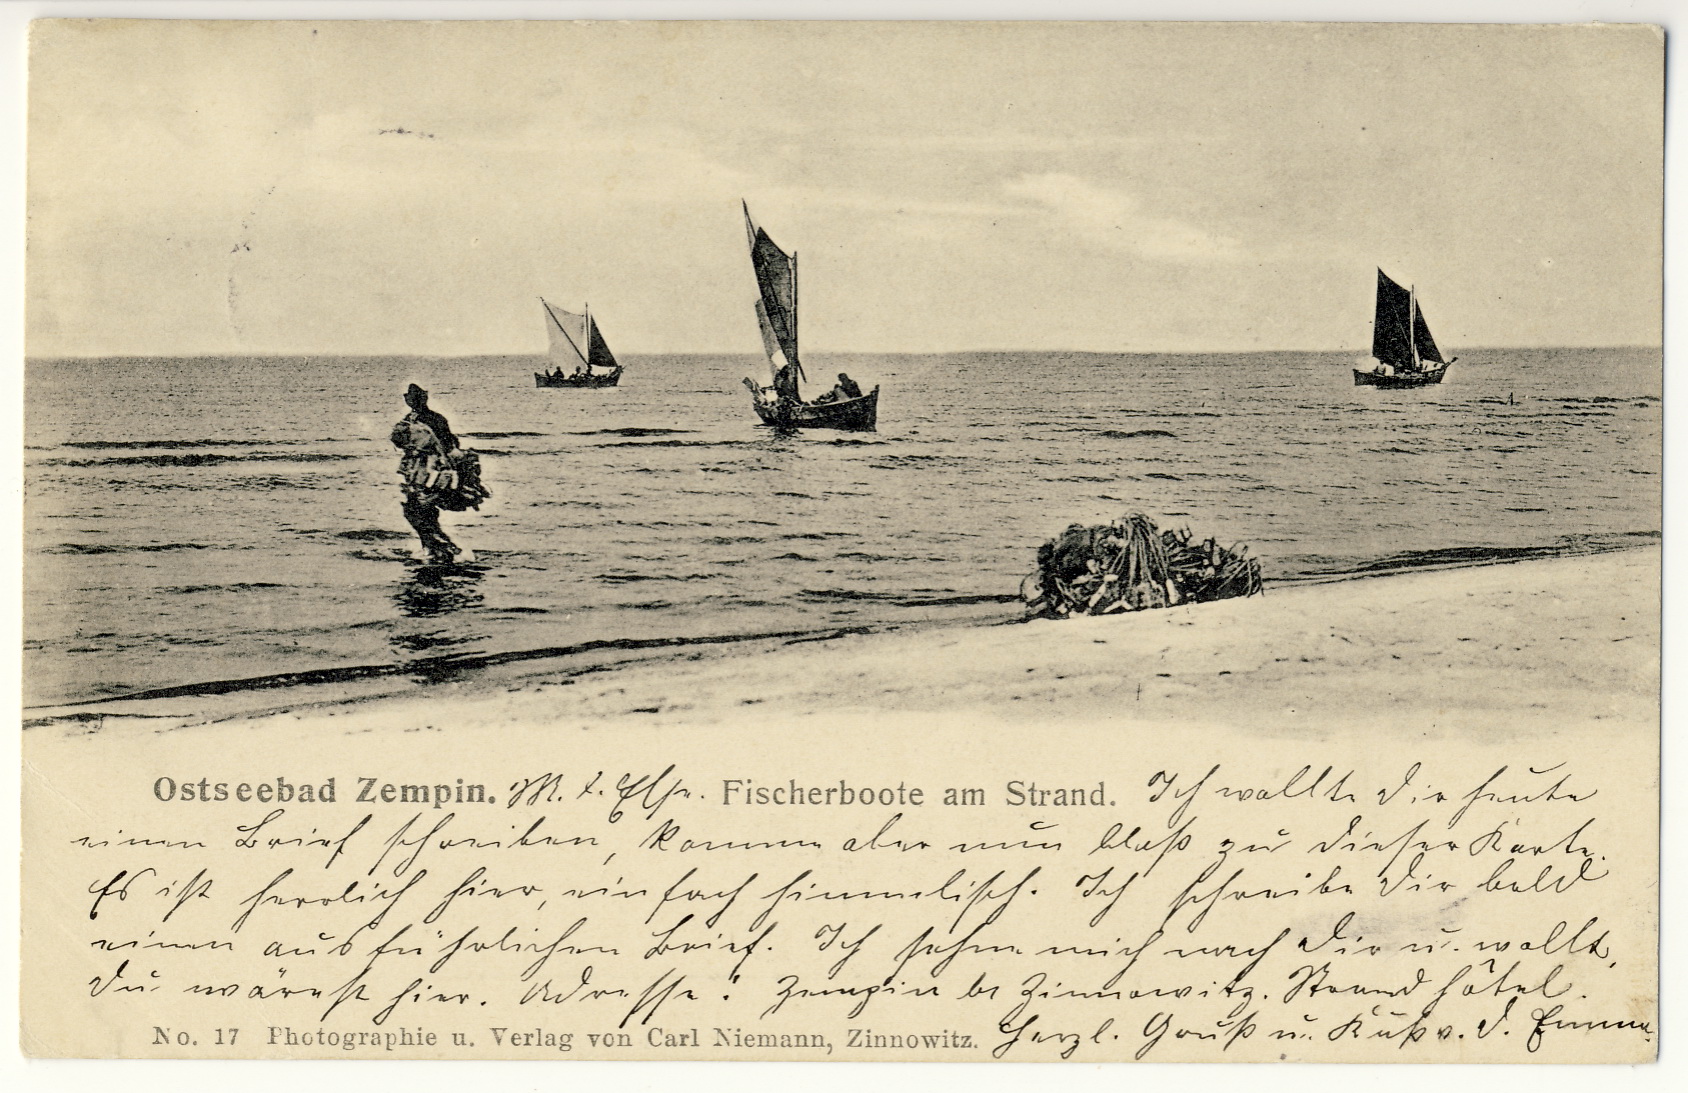 Ostseebad Zempin. M. l. Else. Fischerboote am Strand. Ich wollte Dir heute
einen Brief schreiben, komme aber nun bloß zu dieser Karte.
Es ist herrlich hier, einfach himmlisch. Ich schreibe Dir bald
einen ausführlichen Brief. Ich sehne mich nach Dir u. wollt,
Du wärest hier. Adresse: Zempin bei Zinnowitz. Strandhôtel.
No. 17 Photographie u. Verlag von Carl Niemann, Zinnowitz. Herzl. Gruß u. Kuß v. D. Emma.